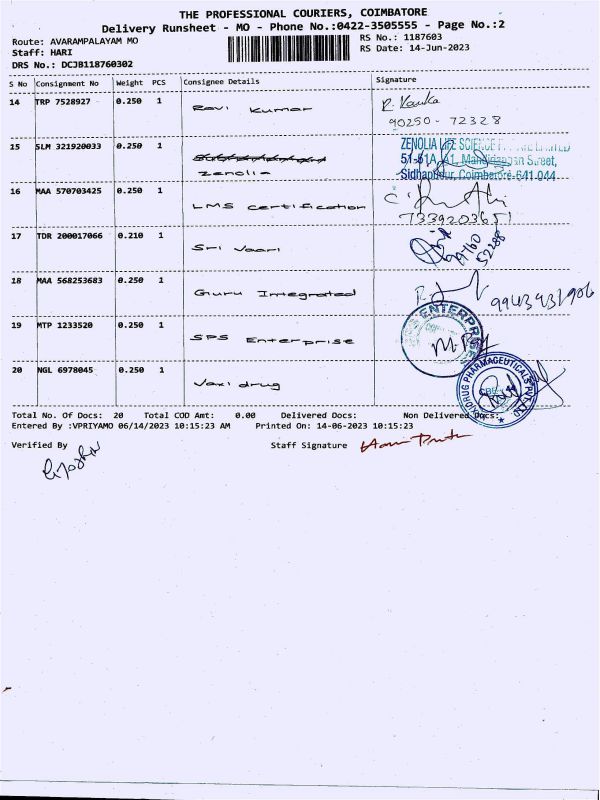 THE PROFESSIONAL COURIERS, COIMBATORE
Delivery Runsheet - MO - Phone No.:0422-3505555 - Page No.:2
Route: AVARAMPALAYAM MO
RS No.: 1187603
Staff: HARI
RS Date: 14-Jun-2023
DRS No.: DCJB118760302
S No Consignment No Weight PCS Consignee Details Signature
14 TRP 7528927 0.250 1 Ravi Kumar
90250 - 72328
15 SLM 321920033 0.250 1 Zenolia
ZENOLIA LIFE SCIENCE
Street,
Coimbatore-641 044
16 MAA 570703425 0.250 1 LMS certification
7339203651
17 TDR 200017066 0.210 1 Sri Vaari
52288
18 MAA 568253683 0.250 1 Guru Integrated
9943931906
19 MTP 1233520 0.250 1 SPS Enterprise
ENTERPRISE
20 NGL 6978045 0.250 1 Vaxi drug
PHARMACEUTICALS
Total No. Of Docs: 20 Total COD Amt: 0.00 Delivered Docs: Non Delivered Docs:
Entered By :VPRIYAMO 06/14/2023 10:15:23 AM Printed On: 14-06-2023 10:15:23
Verified By Staff Signature